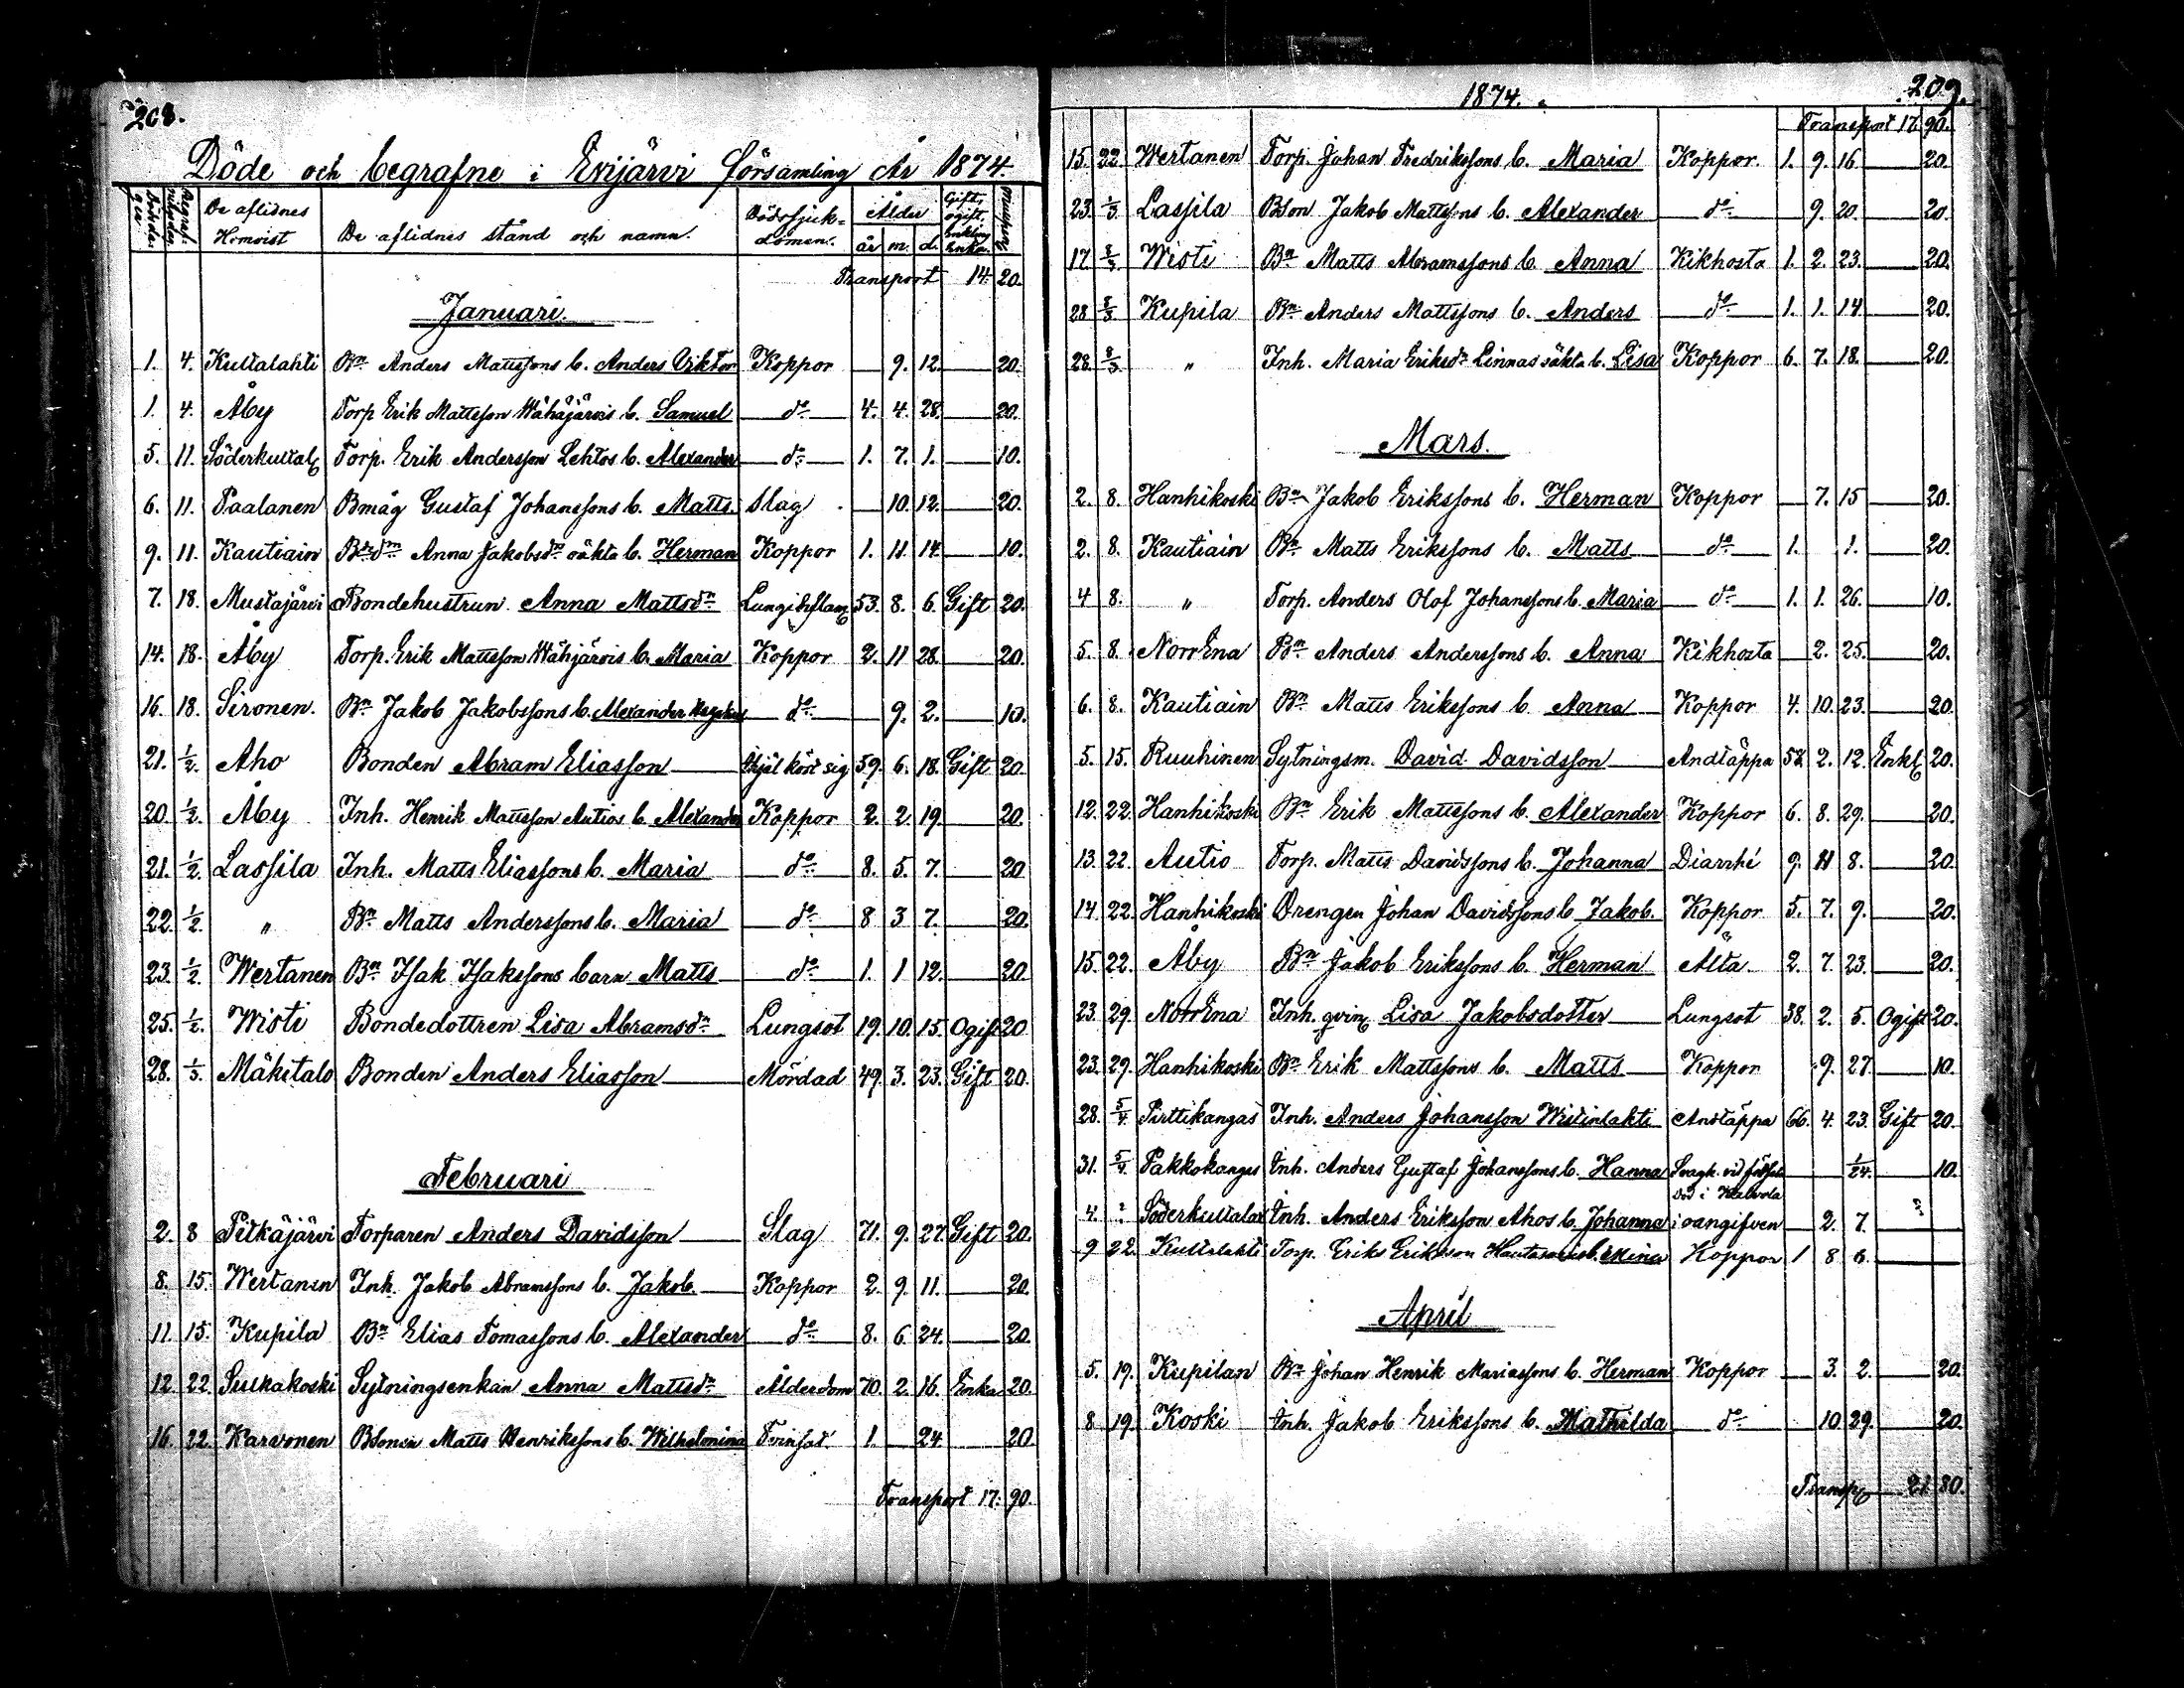 208.
Döde och begrafne i Evijärvi församling År 1874.
Dödsdagen. Begrafningsdag De aflidnes Hemvist De aflidnes stånd och namn. Dödssjukdomen. Ålder år m. d. Gift, ogift, enkling Enka.
Transport 14. 20.
Januari.
1. 4. Kultalahti Bn Anders Mattssons b. Anders Viktor Koppor 9. 12. 20.
1. 4. Åby Torp Erik Mattsson Wähäjärvis b. Samuel do 4. 4. 28. 20.
5. 11. Söderkultal. Torp. Erik Andersson Lehtos b. Alexander do 1. 7. 1. 10.
6. 11. Paalanen Bmåg Gustaf Johanssons b. Matts. Slag 10. 12. 20.
9. 11. Kautiain Brdn Anna Jakobsdn oäkta b. Herman Koppor 1. 11. 14. 10.
7. 18. Mustajärvi Bondehustrun Anna Mattsdn Lunginflam. 53. 8. 6. Gift 20.
14. 18. Åby Torp. Erik Mattsson Wähjärvis b. Maria Koppor 2. 11 28. 20.
16. 18. Sironen. Bn Jakob Jakobssons b. Alexander do 9. 2. 10.
21. 1/2. Aho Bonden Abram Eliasson ihjel kört sig 59. 6. 18. Gift 20.
20. 1/2. Åby Inh. Henrik Mattsson Autios b. Alexander Koppor 2. 2. 19. 20.
21. 1/2. Lassila Inh. Matts Eliassons b. Maria do 8. 5. 7. 20
22. 1/2. " Bn Matts Anderssons b. Maria do 8 3 7. 20.
23. 1/2. Wertanen Bn Isak Isakssons barn Matts do 1. 1 12. 20
25. 1/2. Wisti Bondedottren Lisa Abramsdn Lungsot 19. 10. 15. Ogift 20.
28. 1/3. Mäkitalo Bonden Anders Eliasson Mördad 49. 3. 23. Gift 20.
Februari
2. 8 Pitkäjärvi Torparen Anders Davidsson Slag 71. 9. 27. Gift 20.
8. 15. Wertanen Inh. Jakob Abramssons b. Jakob. Koppor 2. 9. 11. 20.
11. 15. Kupila Bn Elias Tomassons b. Alexander do 8. 6. 24. 20.
12. 22. Sulkakoski Sytningsenkan Anna Mattsdn Ålderdom 70. 2. 16. Enka 20.
16. 22. Karvonen Bsonen Matts Henrikssons b. Wilhelmina Tvinsot 1. 24. 20.
Transport 17. 90.
1874.
209.
Transport 17. 90.
15. 22. Wertanen Torp. Johan Fredrikssons b. Maria Koppor. 1. 9. 16. 20.
23. 1/3. Lassila Bson Jakob Mattssons b. Alexander do 9. 20. 20.
17. 8/3 Wisti Bn Matts Abramssons b. Anna Kikhosta 1. 2. 23. 20.
28 8/3. Kupila Bn Anders Mattssons b. Anders do 1. 1. 14. 20.
28. 8/3. " Inh. Maria Eriksdn Linnas oäkta b. Lisa Koppor 6. 7. 18. 20.
Mars.
2. 8. Hanhikoski Bn Jakob Erikssons b. Herman Koppor 7. 15 20.
2. 8. Kautiain Bn Matts Erikssons b. Matts do 1. 1. 20.
4 8. " Torp. Anders Olof Johanssons b. Maria do 1. 1. 26. 10.
5. 8. NorrEna Bn Anders Anderssons b. Anna Kikhosta 2. 25. 20.
6. 8. Kautiain Bn Matts Erikssons b. Anna Koppor 4. 10. 23. 20.
5. 15. Ruuhinen Sytningsm. David Davidsson Andtäppa 58. 2. 12. Enkl. 20.
12. 22. Hanhikoski Bn Erik Mattssons b. Alexander Koppor 6. 8. 29. 20.
13. 22. Autio Torp. Matts Davidssons b. Johanna Diarrhé 9. 11 8. 20.
14 22. Hanhikoski Drengen Johan Davidssons b. Jakob. Koppor 5. 7. 9. 20.
15. 22. Åby Bn Jakob Erikssons b. Herman Älta 2. 7. 23. 20.
23. 29. NorrEna Inh. qvin. Lisa Jakobsdotter Lungsot 38. 2. 5. Ogift 20.
23. 29. Hanhikoski Bn Erik Mattssons b. Matts Koppor 9. 27. 10.
28. 5/4. Pirttikangas Inh. Anders Johansson Wistinlahti Andtäppa 66. 4. 23. Gift 20.
31. 5/4. Pakkokangas Inh. Anders Gustaf Johanssons b. Hanna Svagh. vid födsel 1/24. 10.
död i Kalvola
4. ? Söderkultalax Inh. Anders Eriksson Ahos b. Johanna i oangifven 2. 7. ?
9 22. Kultalahti Torp. Eriks Eriksson b. Mina Koppor 1 8 6.
April
5. 19. Kupilan Bn Johan Henrik Mariassons b. Herman Koppor 3. 2. 20.
8 19. Koski Inh. Jakob Erikssons b. Mathilda do 10. 29. 20.
Transp. 21. 80.